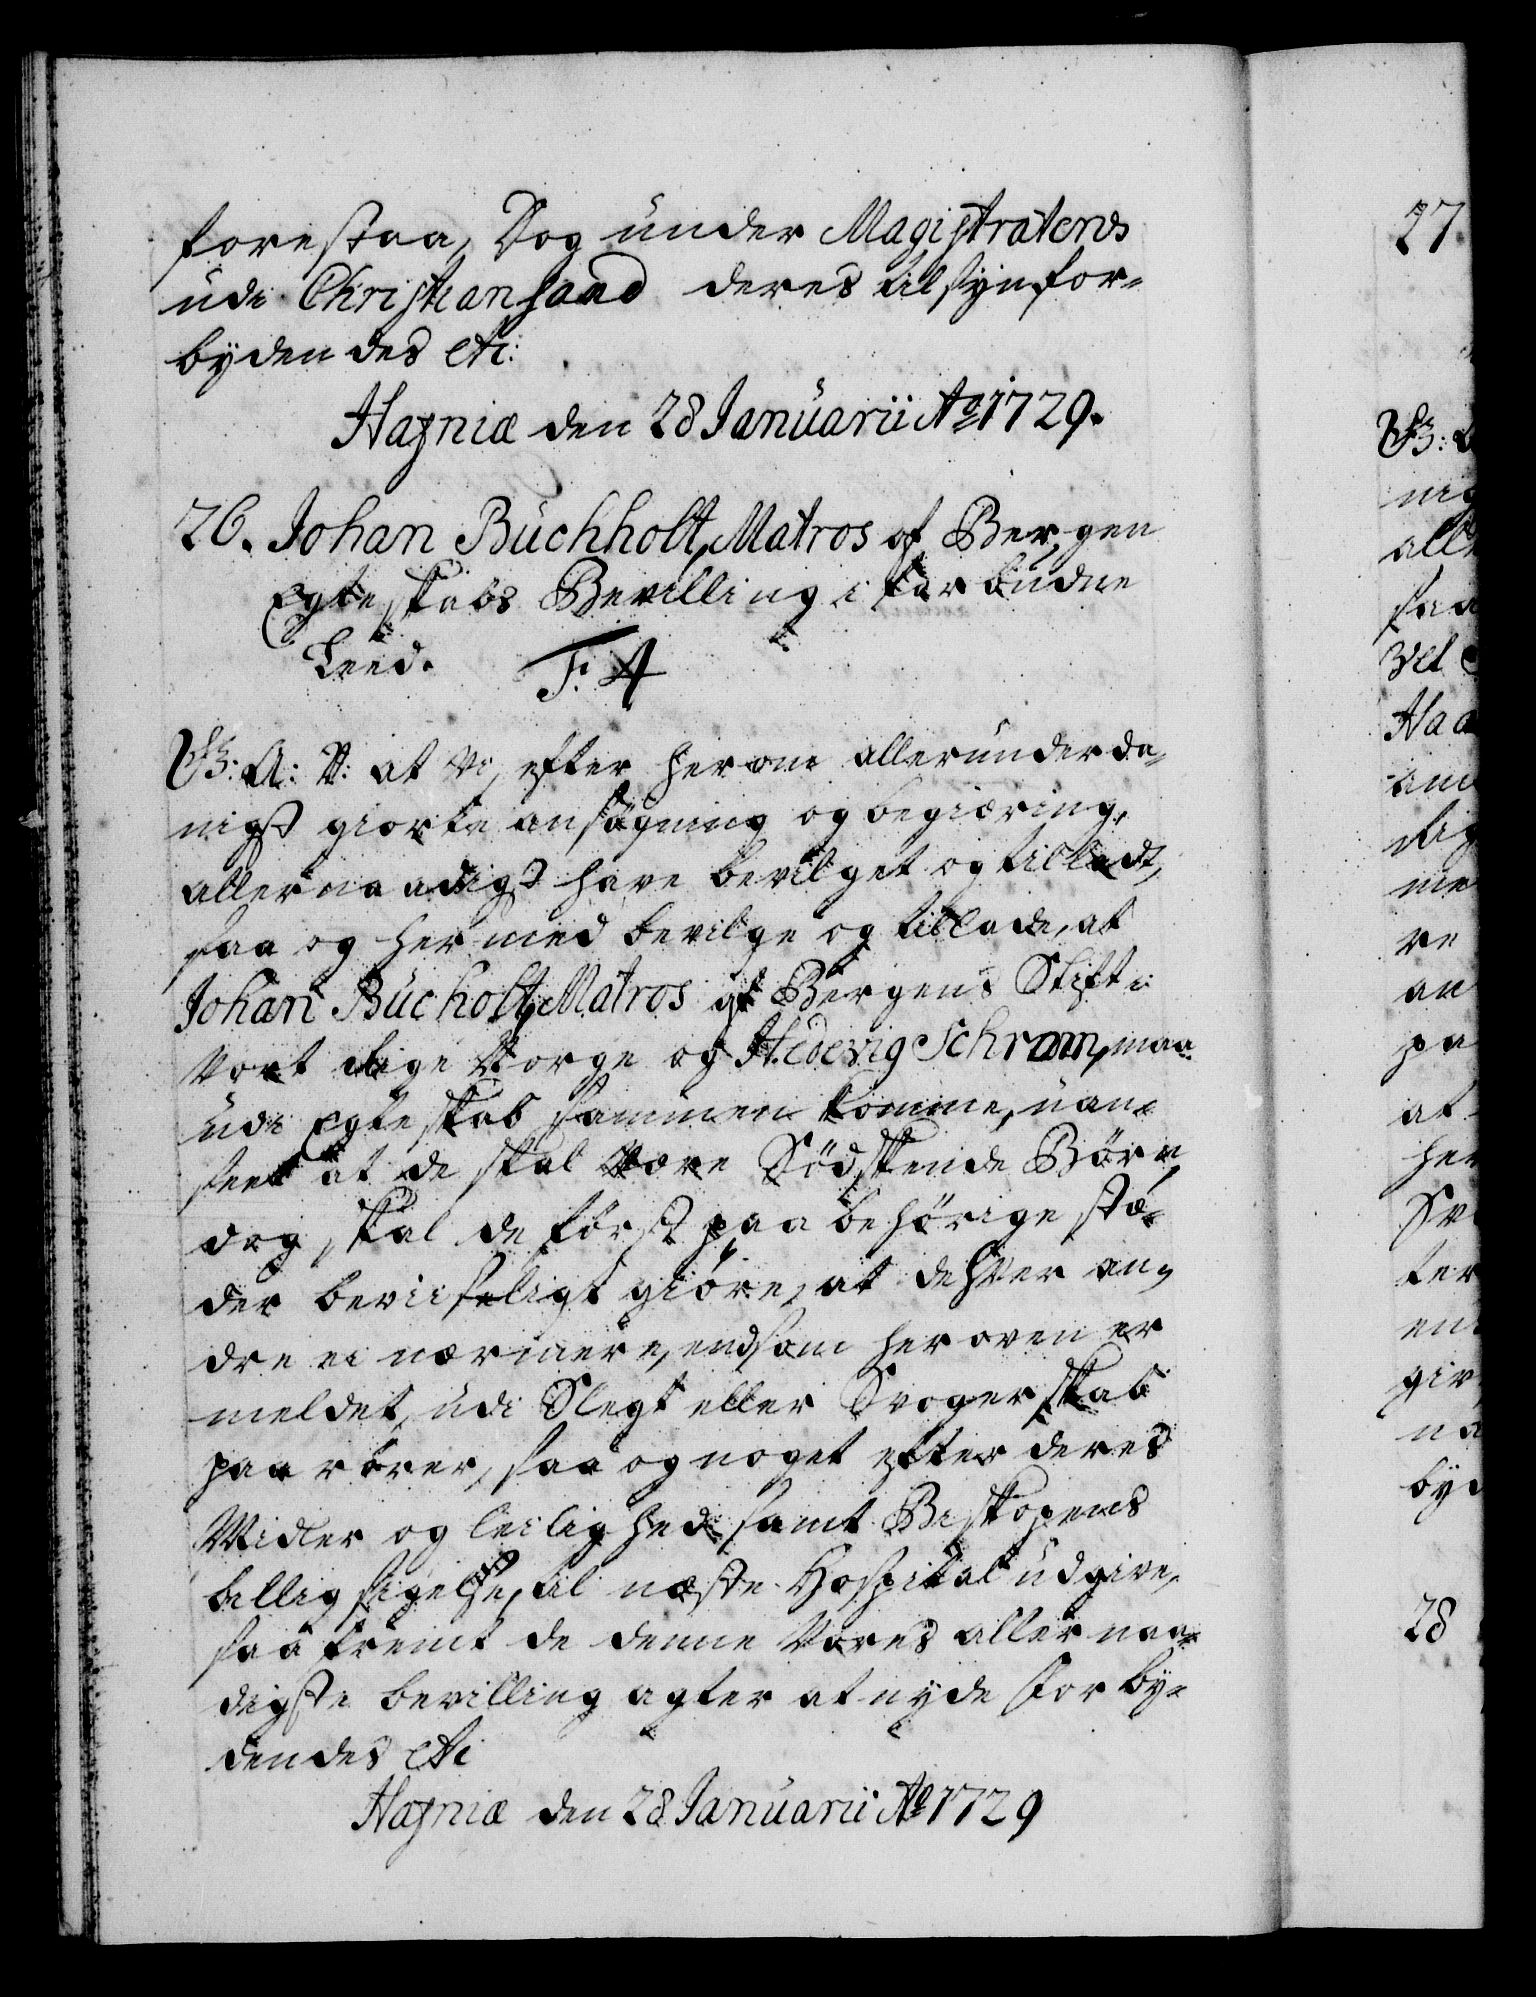 forestaa, Dog under Magistratens
udi Christiansand deres tilsyn for-
bydendes etc:
Hafniæ den 28 Januarii Ao 1729.
26. Johan Buchholt, Matros af Bergen
Egteskabs Bevilling i forbudne
Leed.
F: 4
G: A: V: at Vi, efter herom allerunderda-
nigst giorte ansøgning og begiæring,
allernaadigst have bevilget og tilladt,
saa og hermed bevilge og tillade, at
Johan Bucholt, Matros af Bergens Stift i
Vort Rige Norge og Hedevig Schram, maa
udi Egteskab sammen komme, uan-
seet at de skal være Södskende Börn,
dog skal de först paa behörige stæ-
der beviisligt giöre, at de hver an-
dre ei nærmere, end som her oven er
meldet, udi Slegt eller Svogerskab
paarörer, saa og noget efter deres
Midler og leilighed, samt Biskopens
billigsigelse, til næste Hospital udgive,
saa fremt de denne Vores allernaa-
digste bevilling agter at nyde Forby-
dendes etc
Hafniæ den 28 Januarii Ao 1729
27.
G: A
nig
alle
saa
Vel
Ha a
re
an
pa
at
her
Sv
ter
en
giv
na
byd
28